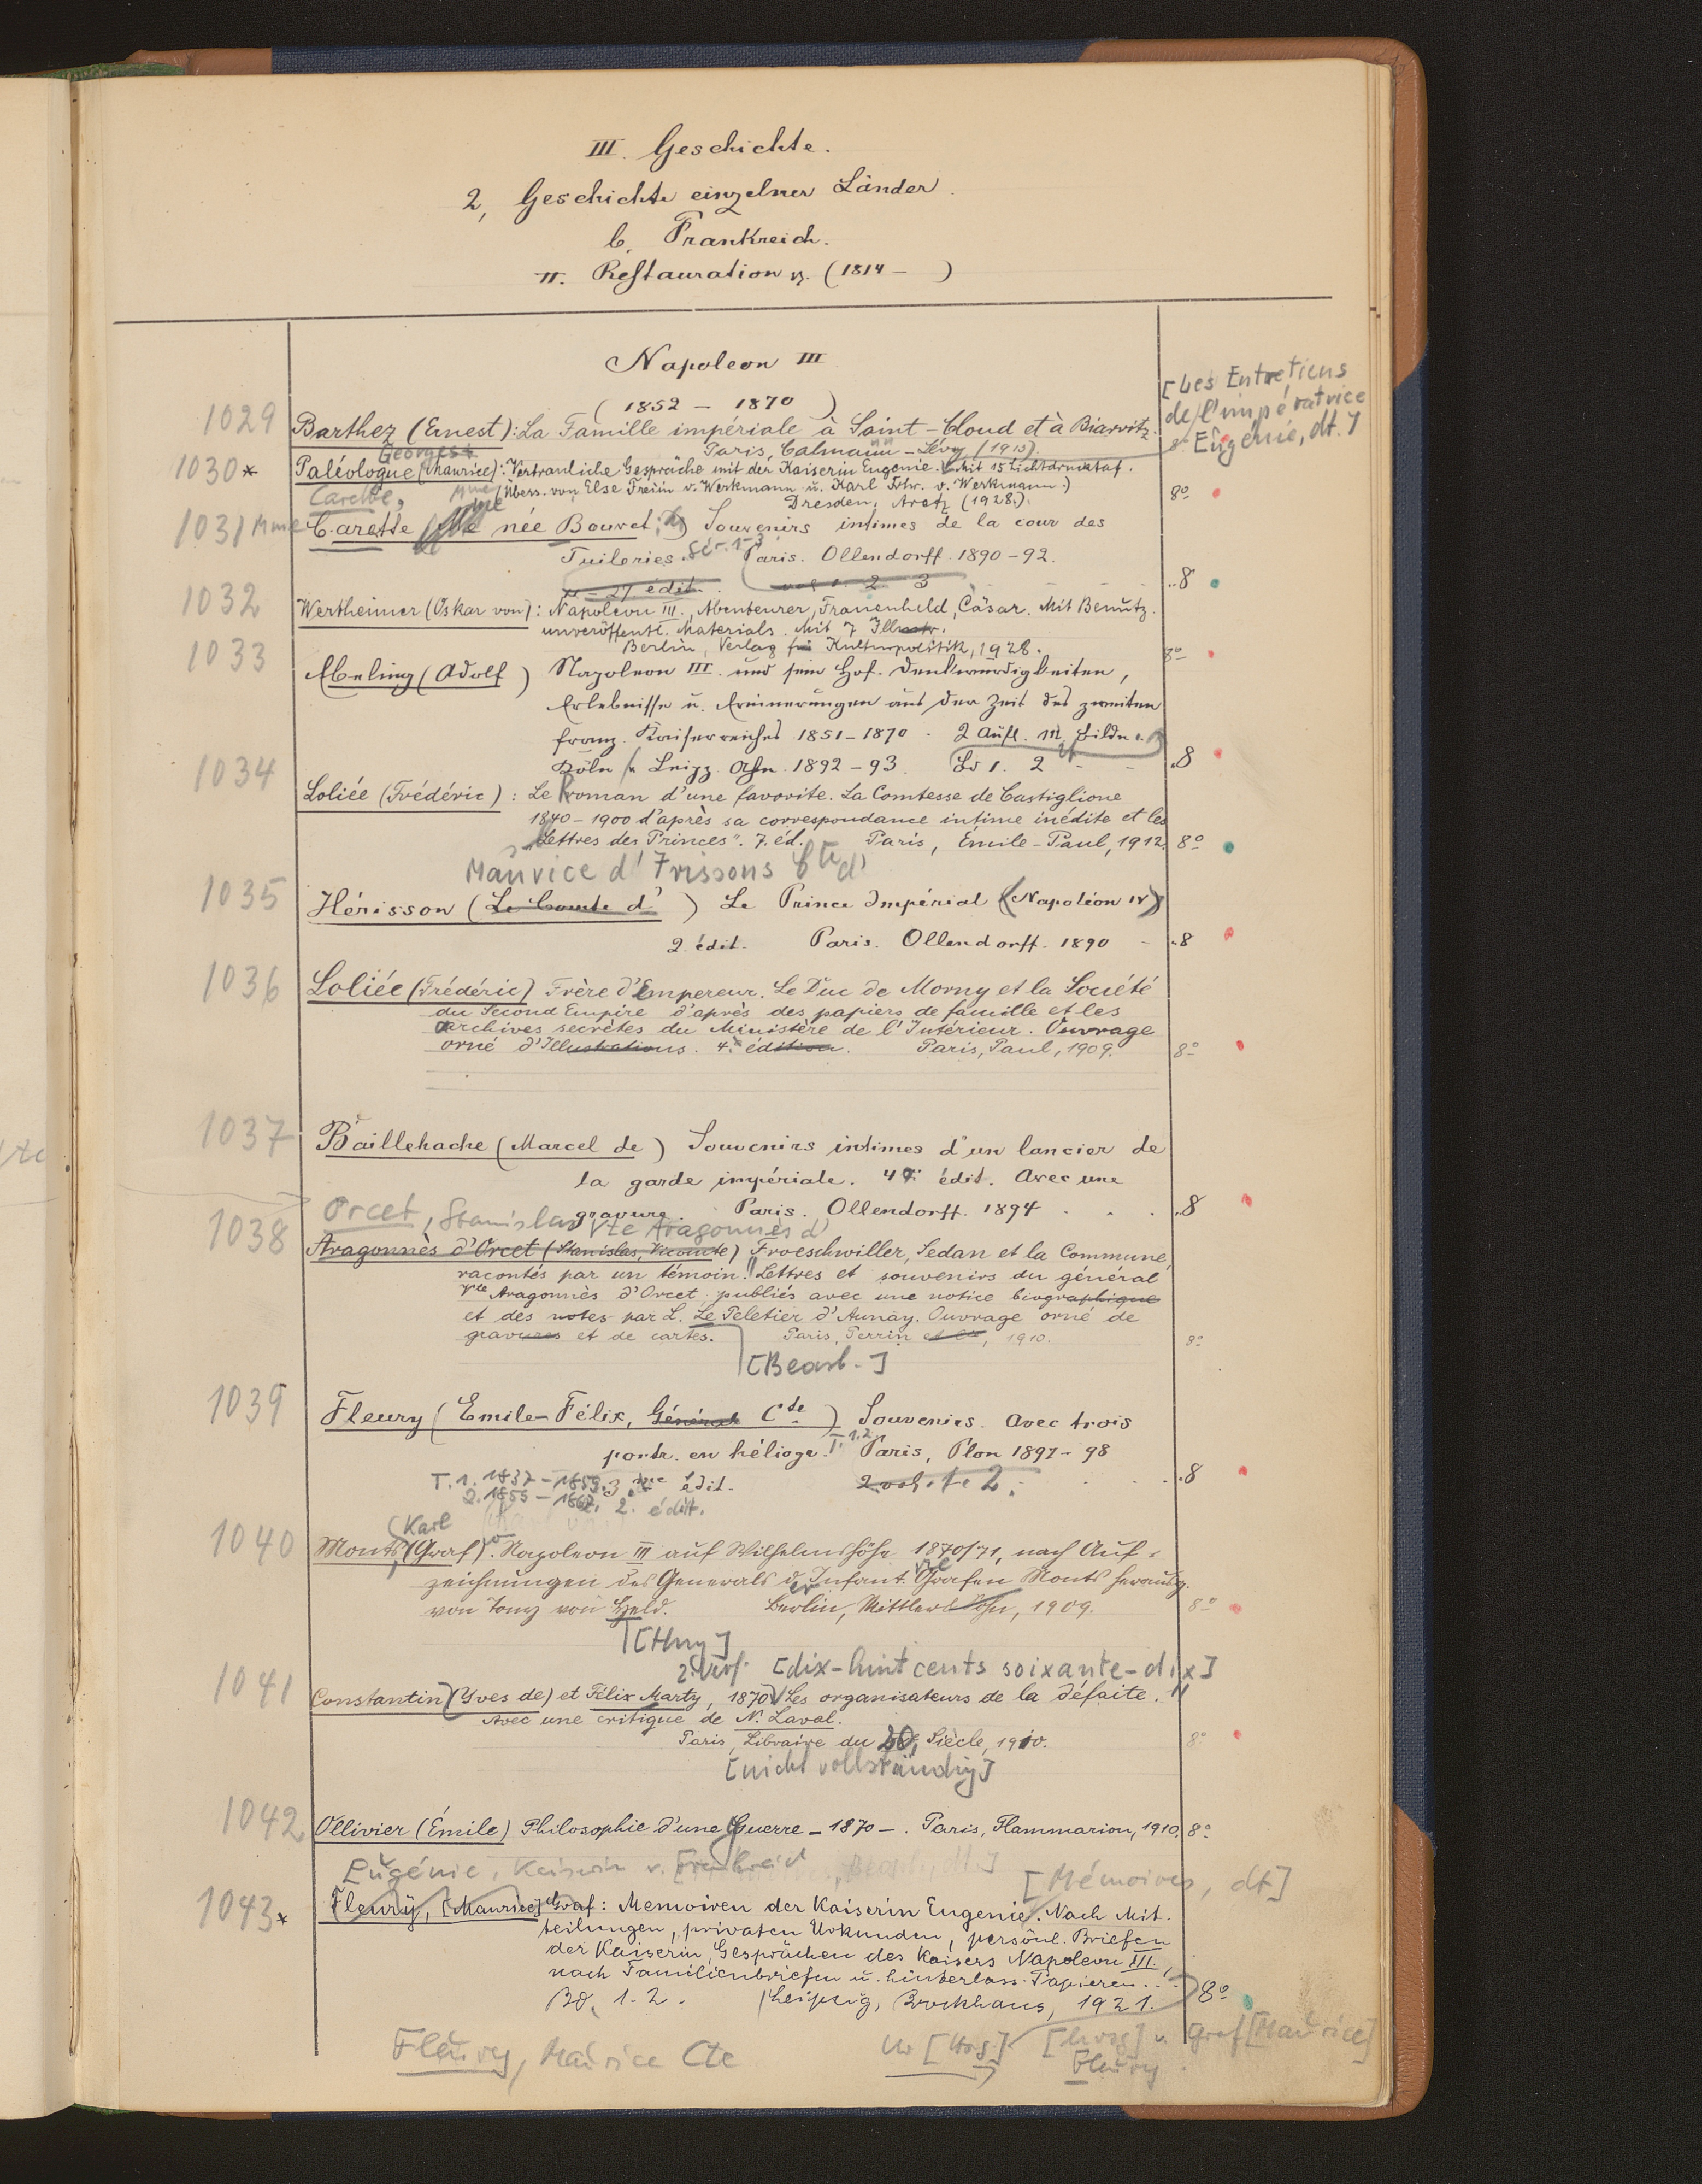 III. Geschichte.
2, Geschichte einzelner Länder.
b. Frankreich.
II. Restauration (1814 – )
Napoleon III
( 1852 – 1870 )
[Les Entretiens
de l'impératrice
Eugénie, dt.]
1029 Barthez (Ernest): La Famille impériale à Saint-Cloud et à Biarritz.
Paris, Calmann-Lévy (1913).
Georges
1030* Paléologue (Maurice): Vertrauliche Gespräche mit der Kaiserin Eugenie. Mit 15 Lichtdrucktaf.
(Übers. von Else Freiin v. Werkmann u. Karl Frhr. v. Werkmann.)
Dresden, Aretz (1928.). 8º
Carette, Mme
1031 Mme Carette née Bouvet: Souvenirs intimes de la cour des
Tuileries. Sér. 1-3 Paris. Ollendorff. 1890-92.
27 édit. vol 1. 2 3 8
1032 Wertheimer (Oskar von): Napoleon III., Abenteurer, Frauenheld, Cäsar. Mit Benutz.
unveröffentl. Materials. Mit 7 Illustr.
Berlin, Verlag für Kulturpolitik, 1928. 8º
1033 Ebeling (Adolf) Napoleon III. und sein Hof. Denkwürdigkeiten,
Erlebnisse u. Erinnerungen aus der Zeit des zweiten
franz. Kaiserreiches 1851-1870. 2 Aufl. m. Bildn.
Köln u. Leipz. Ahn. 1892-93. Bd 1. 2 8
1034 Loliée (Frédéric): Le Roman d'une favorite. La Comtesse de Castiglione
1840-1900 d'après sa correspondance intime inédite et les
"Lettres des Princes". 7. éd. Paris, Émile-Paul, 1912. 8º
Maurice d'Irissons Cte d'
1035 Hérisson (Le Comte d') Le Prince Impérial (Napoléon IV)
2 édit. Paris. Ollendorff. 1890 8
1036 Loliée (Frédéric) Frère d'Empereur. Le Duc de Morny et la Société
du Second Empire d'après des papiers de famille et les
archives secrètes du Ministère de l'Intérieur. Ouvrage
orné d'Illustrations. 4. édition. Paris, Paul, 1909. 8º
1037 Baillehache (Marcel de) Souvenirs intimes d'un lancier de
la garde impériale. 4 édit. Avec une
gravure. Paris. Ollendorff. 1894 8
Orcet, Stanislas Vte Aragonnès d'
1038 Aragonnès d'Orcet (Stanislas, Vicomte) Froeschwiller, Sedan et la Commune,
racontés par un témoin. Lettres et souvenirs du général
Vte Aragonnès d'Orcet publiés avec une notice biographique
et des notes par L. Le Peletier d'Aunay. Ouvrage orné de
gravures et de cartes. Paris, Perrin et Cie, 1910. 8º
[Bearb.]
1039 Fleury (Emile-Félix, Général Cte) Souvenirs. Avec trois
portr. en héliogr. T. 1.2 Paris, Plon 1897-98
T. 1. 1837-1859. 3. édit. 2 vol. 1. 2. 8
2. 1859-1867. 2. édit.
Karl
1040 Monts (Graf). Napoleon III auf Wilhelmshöhe 1870/71, nach Auf-
zeichnungen des Generals der Infant. Grafen Monts herausg.
von Tony von Held. Berlin, Mittler & Sohn, 1909. 8º
[Hrsg]
2. Verf. [dix-huit cents soixante-dix]
1041 Constantin (Yves de) et Félix Marty, 1870. Les organisateurs de la défaite.
Avec une critique de N. Laval.
Paris, Libraire du 20. Siècle, 1910. 8º
[nicht vollständig]
1042 Ollivier (Émile) Philosophie d'une Guerre – 1870 –. Paris, Flammarion, 1910. 8º
Eugénie, Kaiserin v. Frankreich [Mémoires, dt]
1043* Fleury, [Maurice] Graf: Memoiren der Kaiserin Eugenie. Nach Mit-
teilungen, privaten Urkunden, persönl. Briefen
der Kaiserin, Gesprächen des Kaisers Napoleon III.,
nach Familienbriefen u. hinterlass. Papieren...
Bd. 1-2. Leipzig, Brockhaus, 1921. 8º
Fleury, Maurice Cte [Hrsg] [hrsg] v. Graf [Maurice]
Fleury